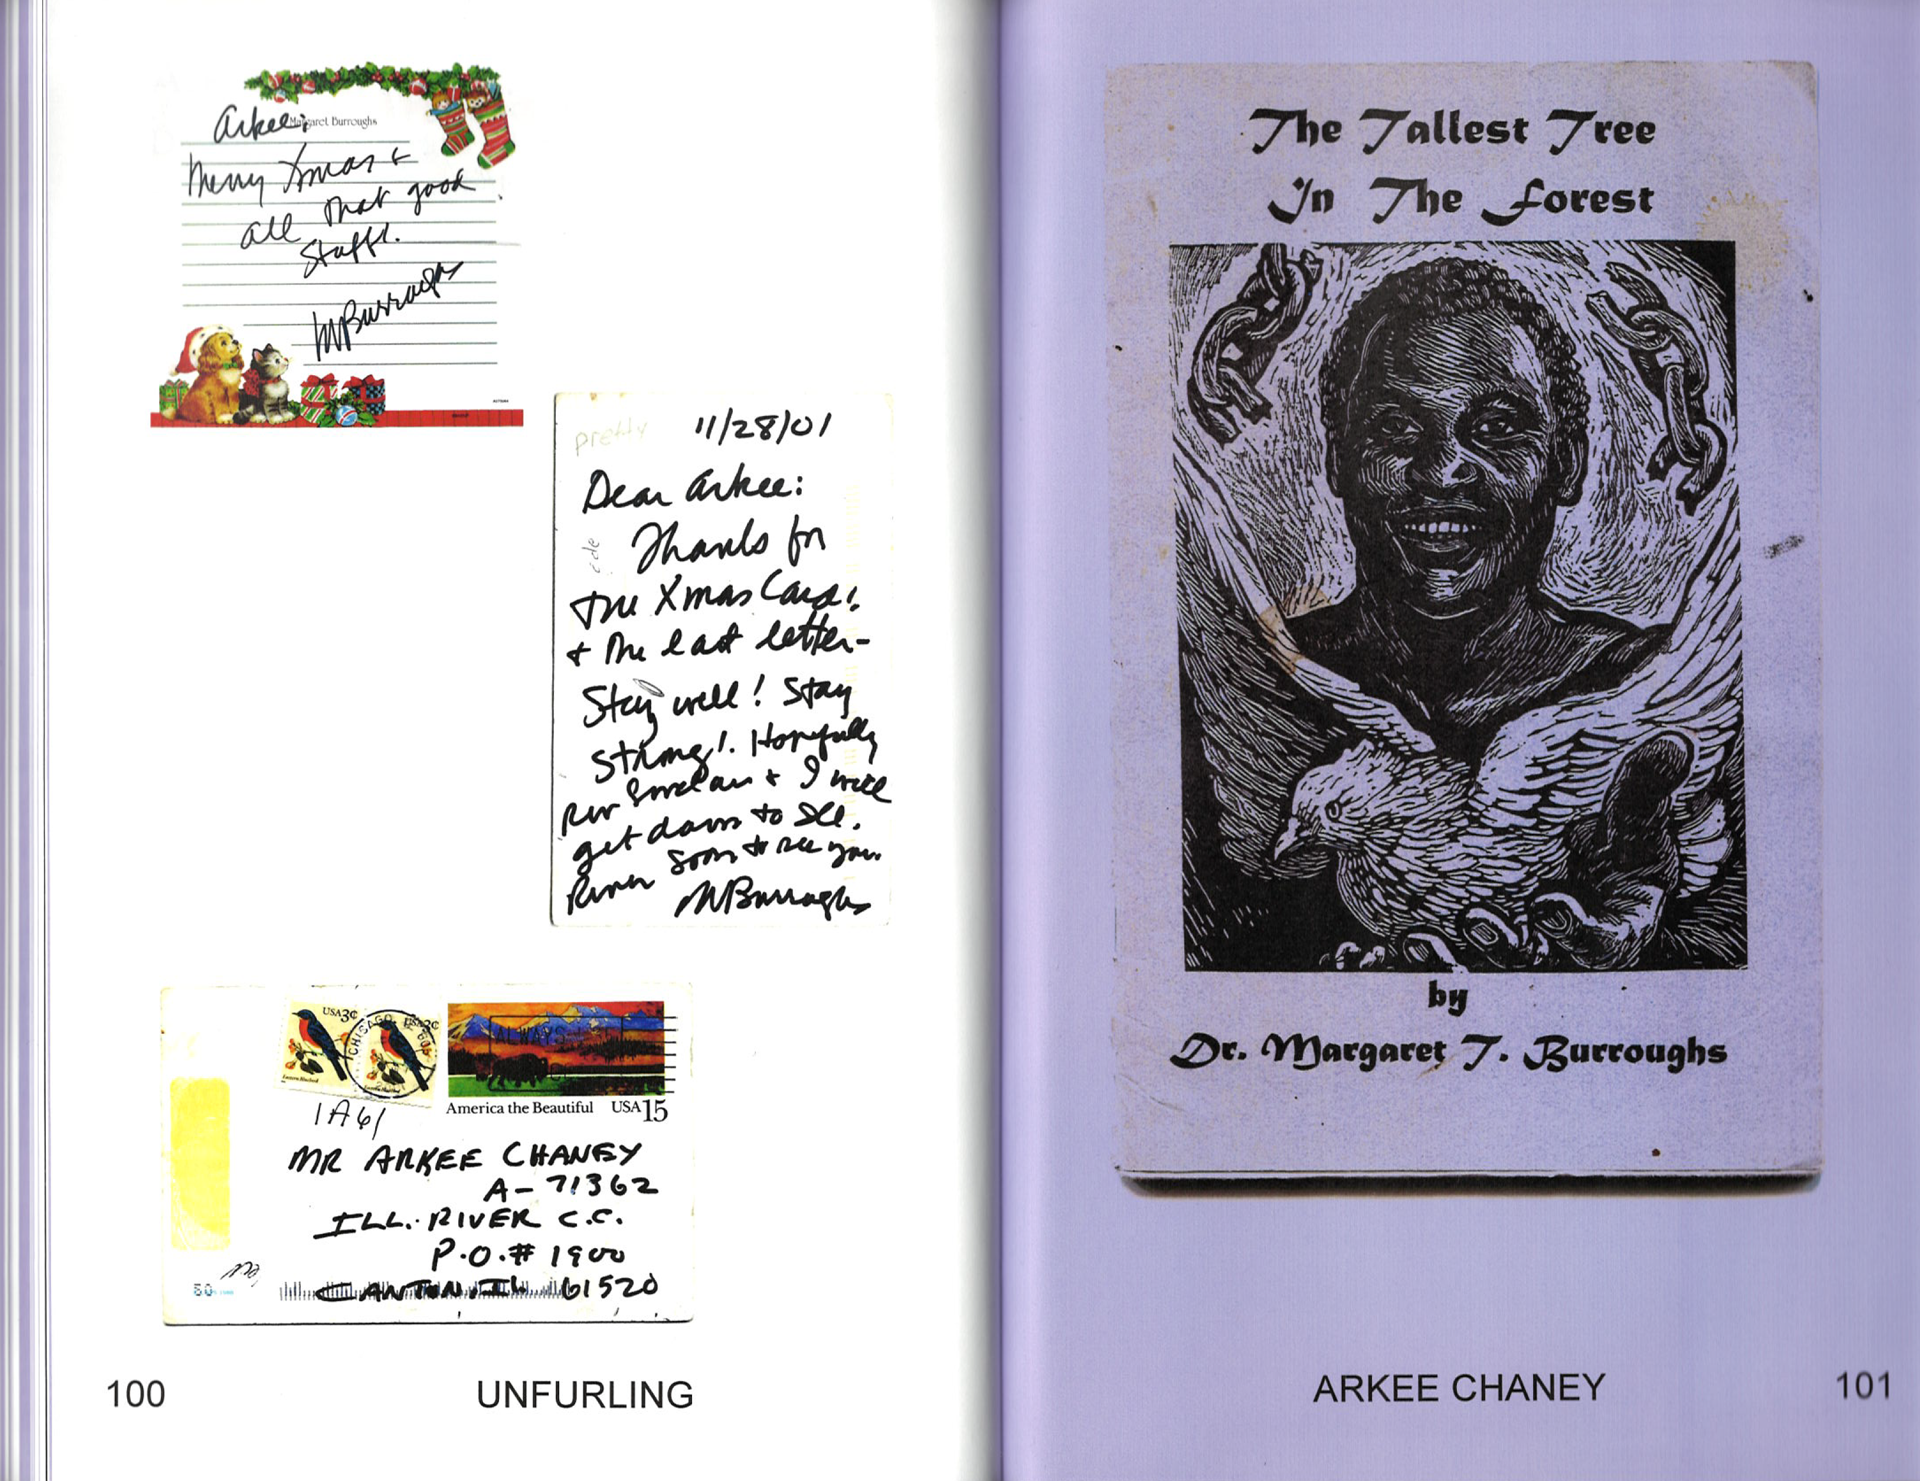 Margaret Burroughs
Arkee:
Merry Xmas &
all that good
Stuff!
MBurroughs
pretty 11/28/01
Dear Arkee:
Thanks for
the Xmas Card!
& the last letter-
Stay well! Stay
strong! Hopefully
Rev & I will
get down to
River soon to see you.
MBurroughs
USA3¢ USA3¢
Eastern Bluebird
CHICAGO
ALWAYS
America the Beautiful USA15
1A61
MR ARKEE CHANEY
A-71362
ILL. RIVER C.C.
P.O.# 1900
CANTON, IL 61520
100 UNFURLING
The Tallest Tree
In The Forest
by
Dr. Margaret T. Burroughs
ARKEE CHANEY 101